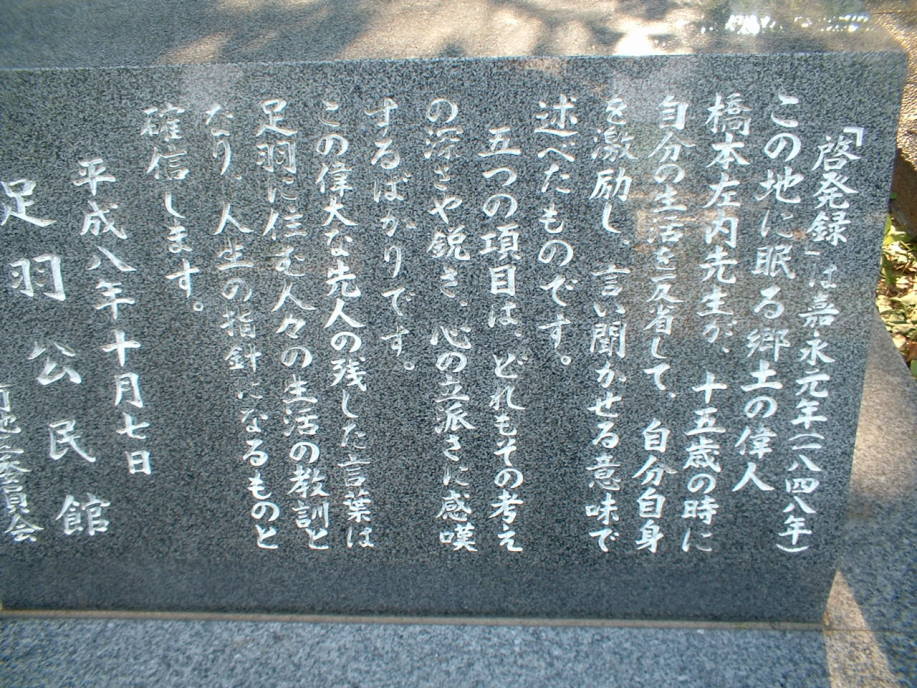 「啓発録」は嘉永元年(一八四八年)
この地に眠る郷土の偉人
橋本左内先生が、十五歳の時に
自分の生活を反省して、自分自身
を激励し、言い聞かせる意味で
述べたものです。
五つの項目は、どれもその考え
の深さや鋭さ、心の立派さに感嘆
するばかりです。
この偉大な先人の残した言葉は
足羽に住む人々の生活の教訓と
なり、人生の指針になるものと
確信します。
平成八年十月七日
足羽公民館
委員会